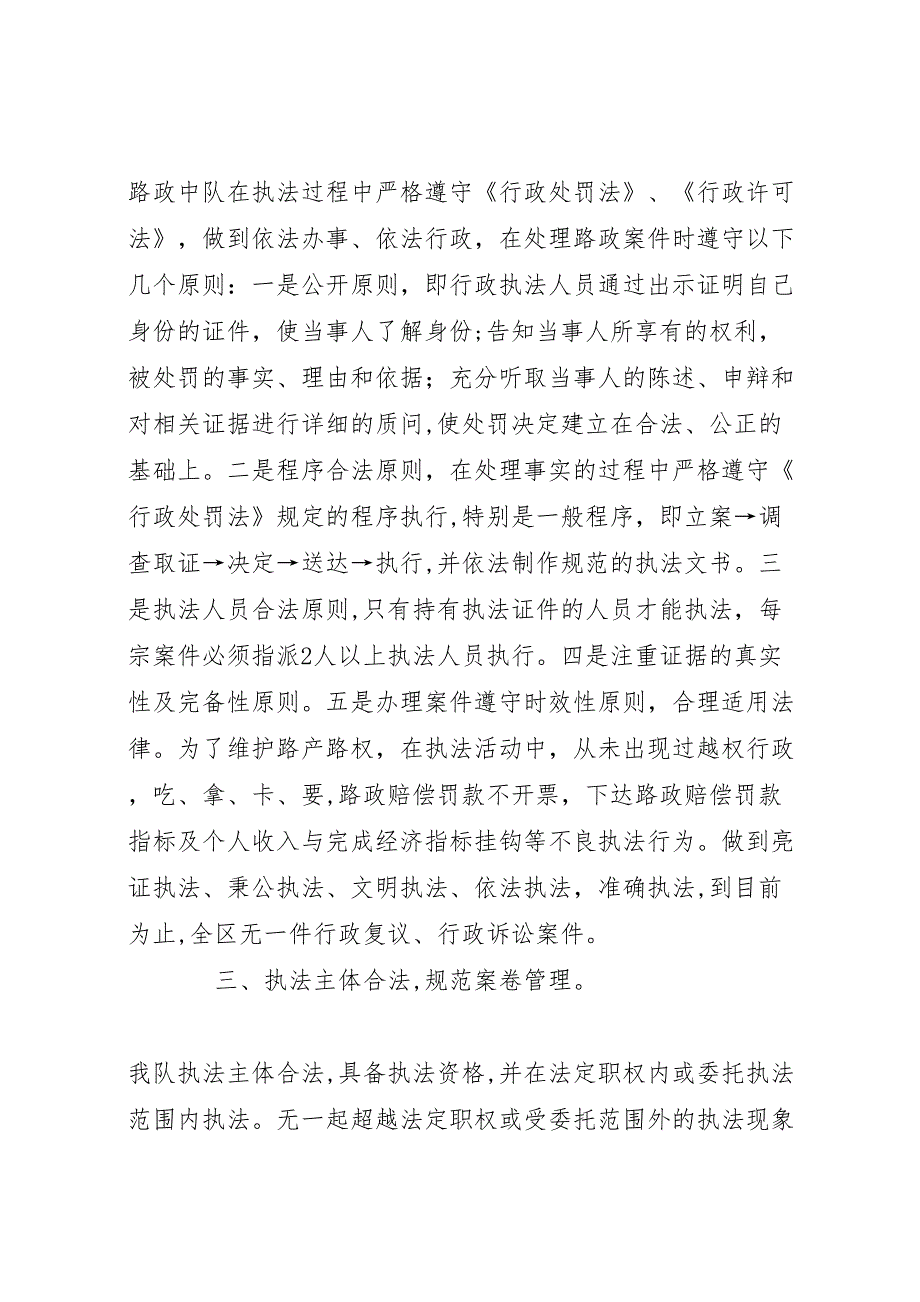 路政中队在执法过程中严格遵守《行政处罚法》、《行政许可
法》，做到依法办事、依法行政，在处理路政案件时遵守以下
几个原则：一是公开原则，即行政执法人员通过出示证明自己
身份的证件，使当事人了解身份;告知当事人所享有的权利，
被处罚的事实、理由和依据；充分听取当事人的陈述、申辩和
对相关证据进行详细的质问,使处罚决定建立在合法、公正的
基础上。二是程序合法原则，在处理事实的过程中严格遵守《
行政处罚法》规定的程序执行,特别是一般程序，即立案→调
查取证→决定→送达→执行,并依法制作规范的执法文书。三
是执法人员合法原则,只有持有执法证件的人员才能执法，每
宗案件必须指派2人以上执法人员执行。四是注重证据的真实
性及完备性原则。五是办理案件遵守时效性原则，合理适用法
律。为了维护路产路权，在执法活动中，从未出现过越权行政
，吃、拿、卡、要,路政赔偿罚款不开票，下达路政赔偿罚款
指标及个人收入与完成经济指标挂钩等不良执法行为。做到亮
证执法、秉公执法、文明执法、依法执法，准确执法,到目前
为止,全区无一件行政复议、行政诉讼案件。
三、执法主体合法,规范案卷管理。
我队执法主体合法,具备执法资格,并在法定职权内或委托执法
范围内执法。无一起超越法定职权或受委托范围外的执法现象